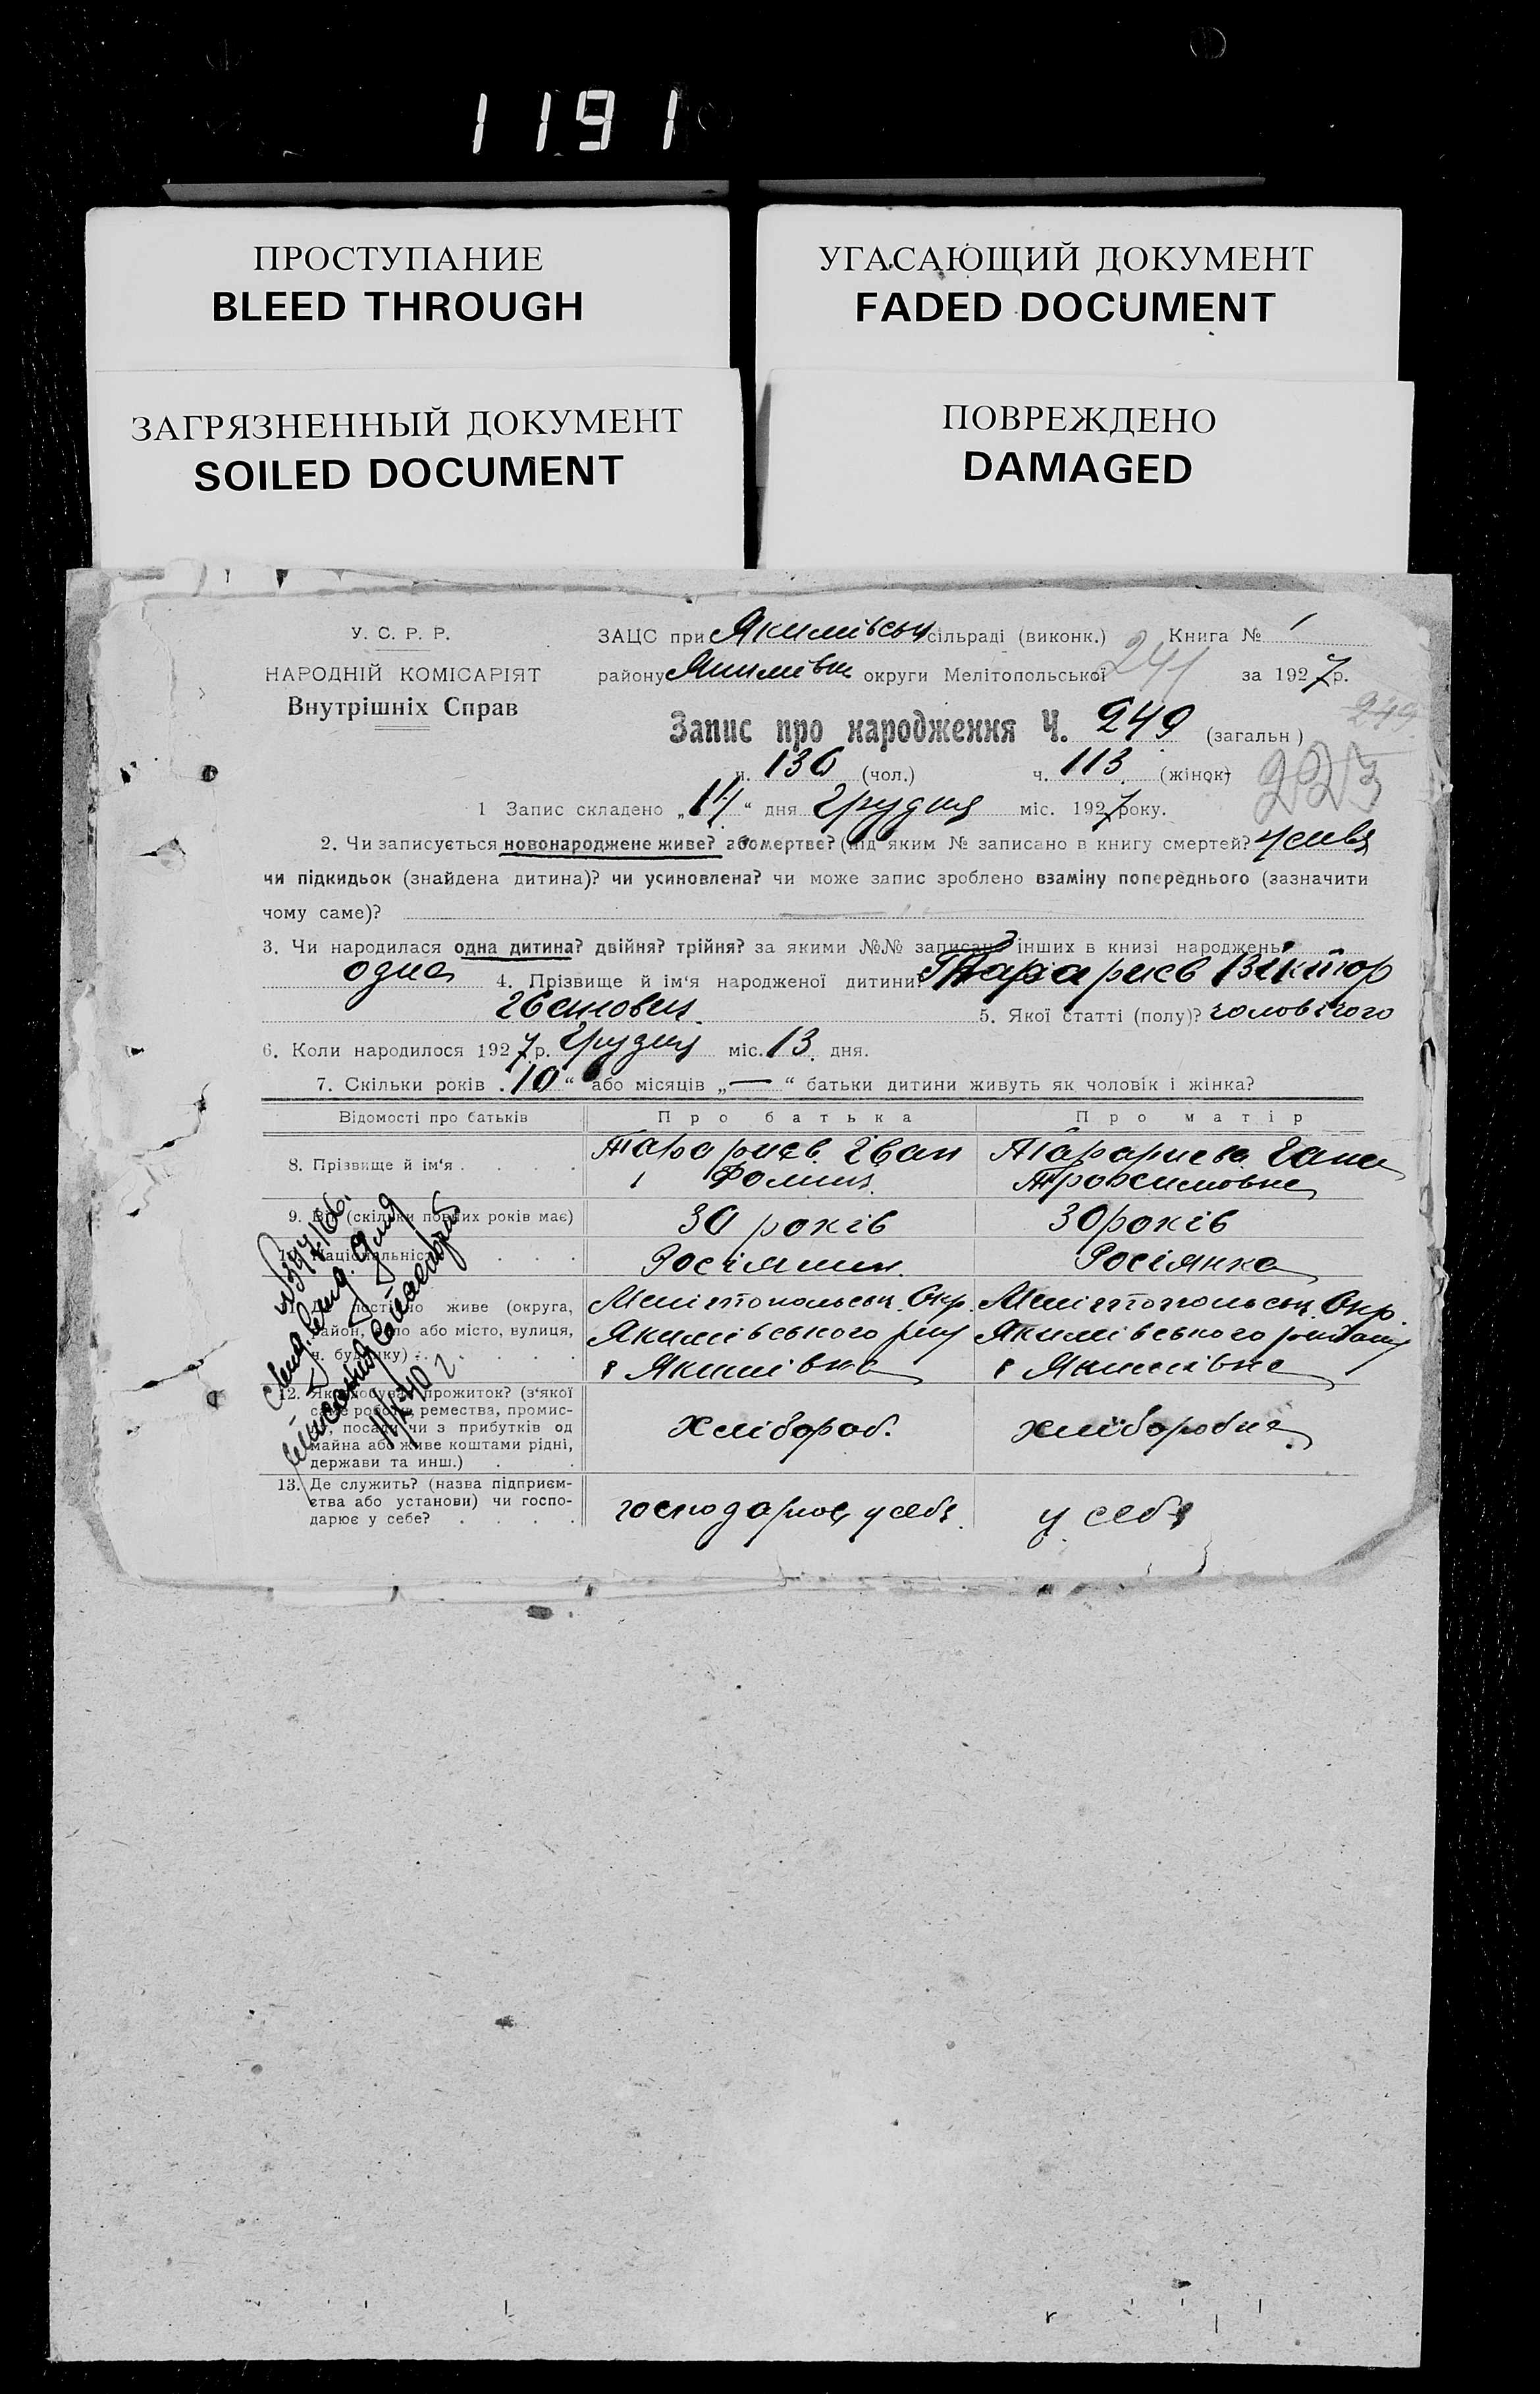 1191
ПРОСТУПАНИЕ
BLEED THROUGH
УГАСАЮЩИЙ ДОКУМЕНТ
FADED DOCUMENT
ЗАГРЯЗНЕННЫЙ ДОКУМЕНТ
SOILED DOCUMENT
ПОВРЕЖДЕНО
DAMAGED
У. С. Р. Р.
НАРОДНІЙ КОМІСАРІЯТ
Внутрішніх Справ
ЗАЦС при Якимівськ сільраді (виконк.) Книга № 1
району Якимівськ округи Мелітопольської 241 за 1927 р.
249
Запис про народження Ч. 249 (загальн)
ч. 136 (чол.) ч. 113 (жінок)
223
1 Запис складено „14“ дня Грудня міс. 1927 року.
2. Чи записується новонароджене живе? або мертве? (під яким № записано в книгу смертей? живе
чи підкидьок (знайдена дитина)? чи усиновлена? чи може запис зроблено взаміну попереднього (зазначити
чому саме)?
3. Чи народилася одна дитина? двійня? трійня? за якими №№ записано інших в книзі народжень?
одна 4. Прізвище й ім'я народженої дитини? Тарариєв Віктор
Іванович 5. Якої статті (полу)? чоловічого
6. Коли народилося 1927 р. Грудня міс. 13 дня.
7. Скільки років „10“ або місяців „—“ батьки дитини живуть як чоловік і жінка?
Відомості про батьків Про батька Про матір
8. Прізвище й ім'я . . . . Тарариєв Іван Тарариєва Гана
Фомич Трохимовна
9. Вік (скільки повних років має) 30 років 30 років
10. Національність . . . Росіянин Росіянка
11. Де постійно живе (округа, Мелітопольськ. Окр. Мелітопольськ. Окр.
район, село або місто, вулиця, Якимівського рну Якимівського району
ч. будинку) . . . с Якимівка с Якимівка
12. Як добуває прожиток? (з'якої
саме роботи, ремества, промис-
лу, посади чи з прибутків од Хлібороб. хліборобка
майна або живе коштами рідні,
держави та инш.) . .
13. Де служить? (назва підприєм-
ства або установи) чи госпо- господарює у себе у себе
дарює у себе? . . . .